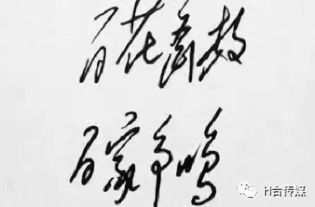 百花齐放
百家争鸣
H合传媒